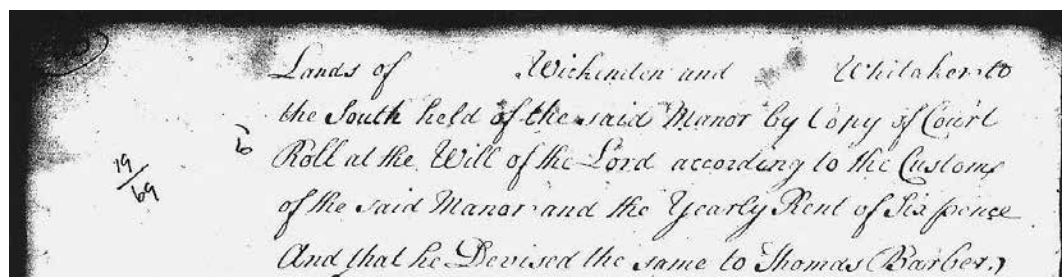 Lands of Wickenden and Whitaker to
the South held of the said Manor by Copy of Court
6
Roll at the Will of the Lord according to the Custom
19
69
of the said Manor and the Yearly Rent of Six pence
And that he Devised the same to Thomas Barber